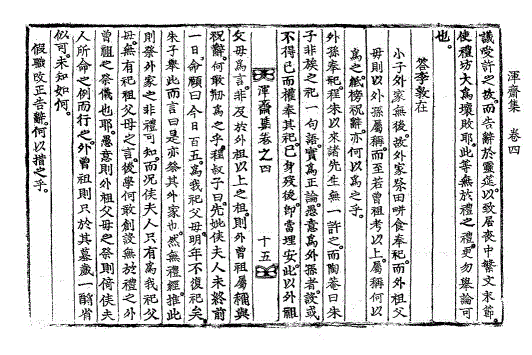 渾齋集 卷四
議受許之故而告辭於靈筵以致居喪中繁文末節
使禮坊大爲壞敗耶此等無於禮之禮更勿擧論可
也
答李敦在
小子外家無後故外家祭田畊食奉祀而外祖父
母則以外孫屬稱而至若曾祖考以上屬稱何以
爲之紙榜祝辭亦何以爲之乎
外孫奉祀程朱以來諸先生無一許之而陶菴曰朱
子非族之祀一句語實爲正論愚意爲外孫者設或
不得已而權奉其祀已身歿後卽當埋安此以外祖
渾齋集卷之四 十五
父母爲言非及於外祖以上之祖則外曾祖屬稱與
祝辭何敢勒爲之乎程叔子曰先妣侯夫人未終前
一日命頤曰今日百五爲我祀父母明年不復祀矣
朱子擧此而言曰是亦祭其外家也然無禮經推此
則祭外家之非禮可知而況侯夫人只有爲我祀父
母無有祀祖父母之言後學何敢創設無於禮之外
曾祖之祭儀也耶愚意則外祖父母之祭則倚侯夫
人所命之例而行之外曾祖則只於其墓歲一酹省
似可未知如何
假職改正告辭何以措之乎